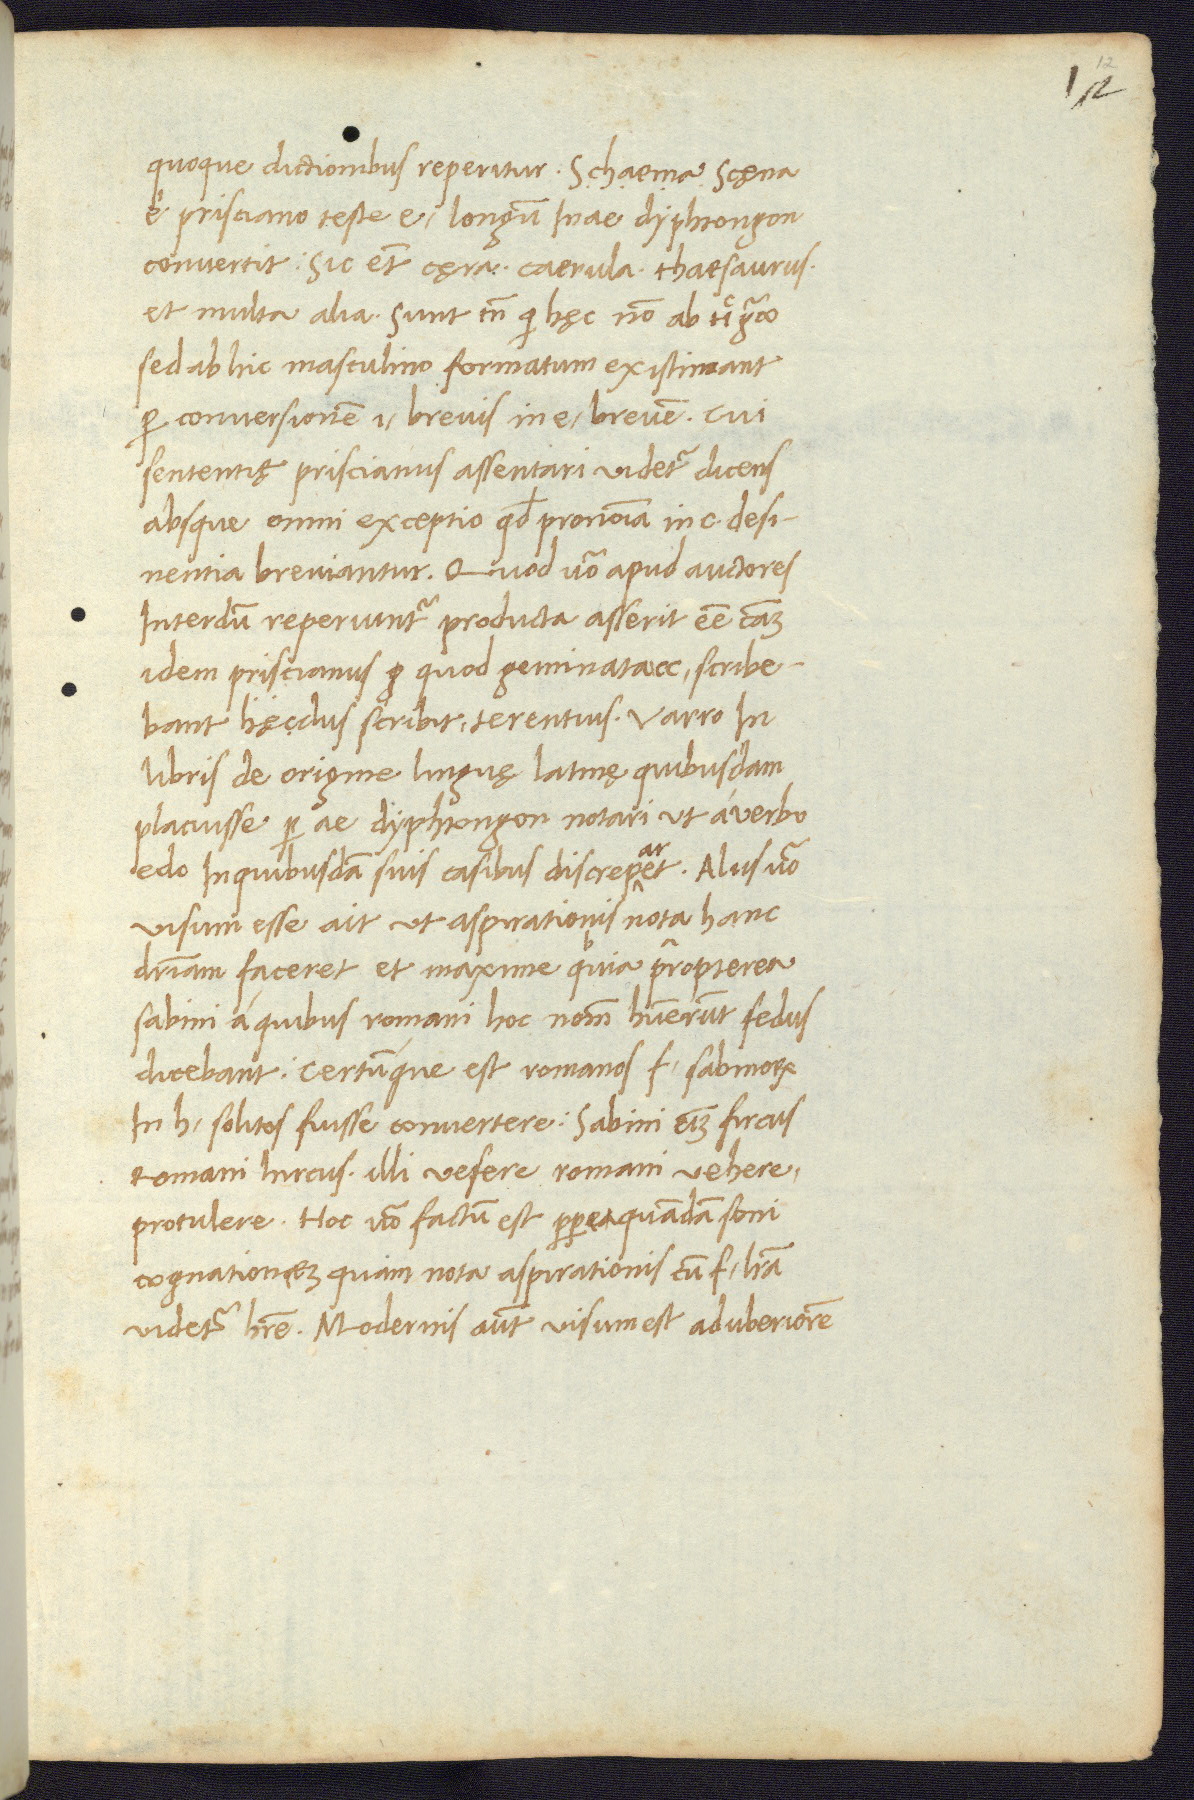 12
12
quoque dictionibus reperitur. Schaema Scęna
e prisciano teste e, longū In ae dyphtongon
convertit. Sic et̄ cęra. caerula. thaesaurus.
et multa alia. Sunt tn̄ qi hęc nō ab grco
sed ab hic masculino formatum existimant
ꝑ conversionē i, brevis in e, brevē. Cui
sententię priscianus assentari videt᷑ dicens
absque omni exceptio qd̄ pronoīa in c. desi-
nentia breviantur. Quod vō apud auctores
Interdū reperiunt᷑ producta asserit eē cāꝫ
idem priscianus ꝓ quod geminata cc, scribe-
bant hęcdus scribit, terentius. Varro In
libris de origine linguę latinę quibusdam
placuisse ꝑ ae dyphtongon notari ut á verbo
edo In quibusdā suis casibus discreparet. Alijs vō
visum esse ait ut aspirationis nota hanc
dr̄iam faceret et maxime quia propterea
sabini á quibus romani hoc nom̄ hūerūt fedus
dicebant. Certūque est romanos f, sabinoꝝ
In h, solitos fuisse convertere. Sabini eīꝫ fircus
Romani hircus. illi vefere romani vehere,
protulere. Hoc vō factū est ꝓpea quādā soni
cognationęꝫ quam nota aspirationis cū f, lr̄a
videt᷑ hr̄e. Modernis aūt visum est ad uberiorē